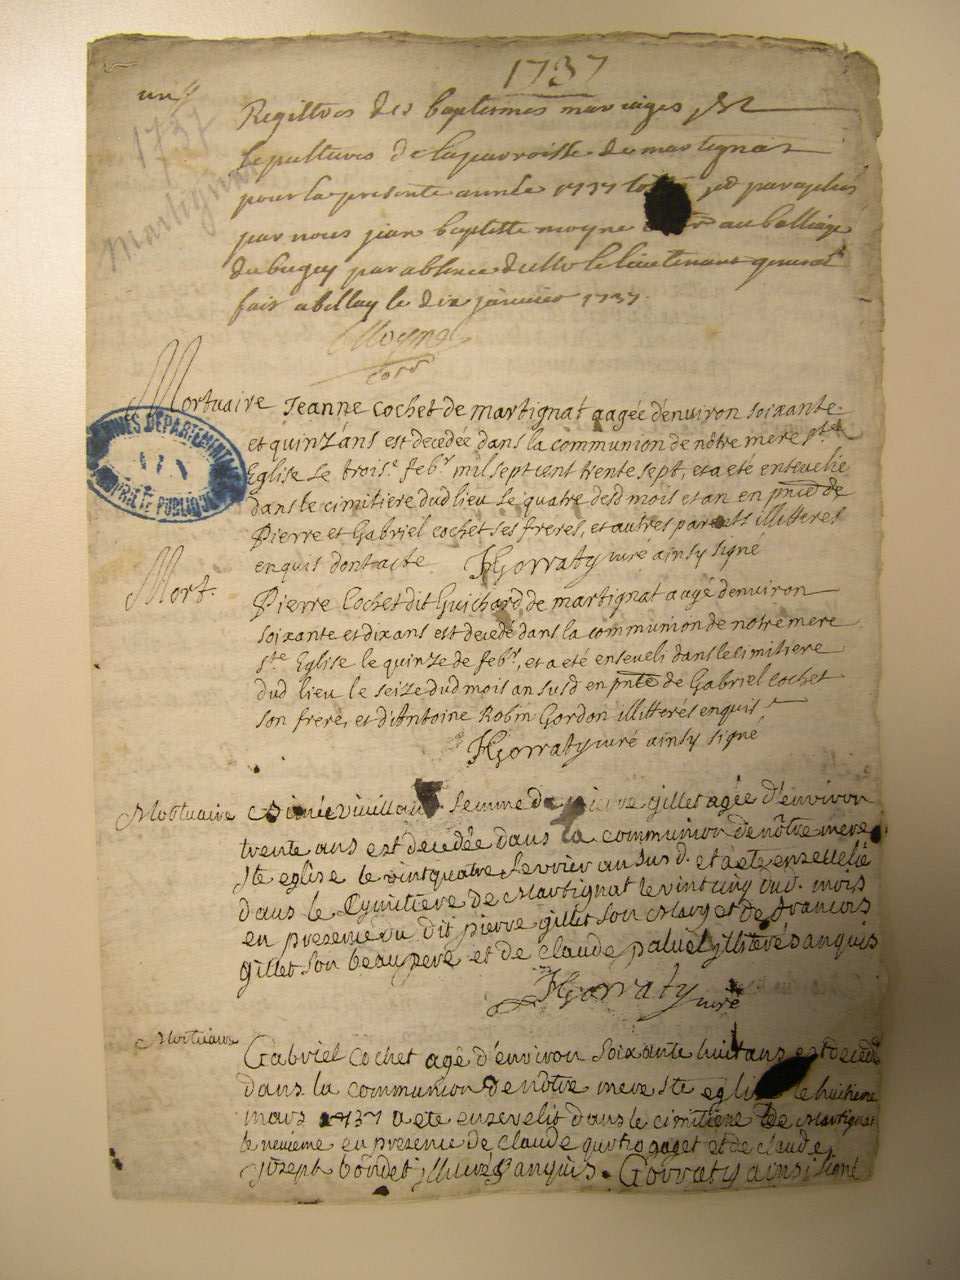 1737
un
1737
Martignat
Registres des baptesmes mariages &
sepultures de la parroisse de martignat
pour la presente année 1737 paraphés
par nous jean baptiste moyne au balliage
du bugey par absence de le lieutenant general
fait a bellay le dix janvier 1737
Moyne
Mortuaire Jeanne Cochet de Martignat aagée d'environ soixante
et quinz'ans est decedée dans la communion de nôtre mere Ste
Eglise le trois.e feb.r mil sept cent trente sept, et a été ensevelie
dans le cimitiere dud lieu le quatre desd mois et an en pnce de
Pierre et Gabriel Cochet ses freres, et autres parents illitteres
enquis dont acte. Gorraty curé ainsy signé
Mort. Pierre Cochet dit Guichard de martignat aagé denviron
soixante et dix ans est decedé dans la communion de notre mere
Ste Eglise le quinze de feb.r, et a été enseveli dans le cimitiere
dud lieu le seize dud mois an susd en pnce de Gabriel Cochet
son frere, et d'Antoine Robin Gordon illitterés enquis
Gorraty curé ainsy signé
Mortuaire femme de pierre gillet agée d'environ
trente ans est decedée dans la communion de nôtre mere
ste eglise le vint quatre fevrier an sus d. et a ete ensevelié
dans le Cymitiere de Martignat le vint cinq dud. mois
en presence du dit pierre gillet son Mary et de francois
gillet son beau pere et de claude paluel illiterés anquis
Gorraty curé
Mortuaire Gabriel Cochet agé d'environ soixante huit ans est decedé
dans la communion de nôtre mere ste eglise le huitieme
mars 1737 a ete ensevelit dans le cimitiere de Martignat
le neuieme en presence de claude et de claude
joseph bondet illiterés anquis. Gorraty ainsi signé
ARCHIVES DÉPARTEMENTALES
AIN
PROPRIÉTÉ PUBLIQUE